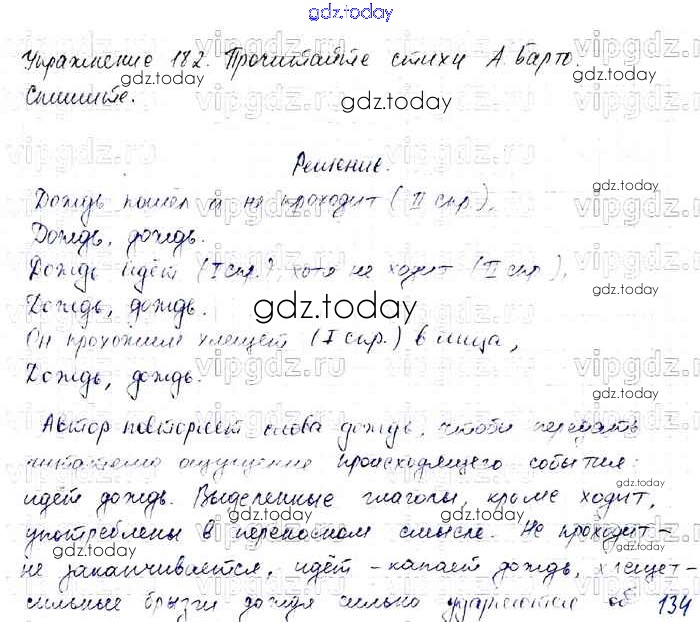 gdz.today
Упражнение 182. Прочитайте стихи А. Барто.
Спишите.
Решение.
Дождь пошёл и не проходит (II спр.),
Дождь, дождь.
Дождь идёт (I спр.), хотя не ходит (II спр.),
Дождь, дождь.
Он прохожим хлещет (I спр.) в лица,
Дождь, дождь.
Автор повторяет слова дождь, чтобы передать
читателю ощущение происходящего события:
идёт дождь. Выделенные глаголы, кроме ходит,
употреблены в переносном смысле. Не проходит -
не заканчивается, идёт - капает дождь, хлещет -
сильные брызги дождя сильно ударяются об
134